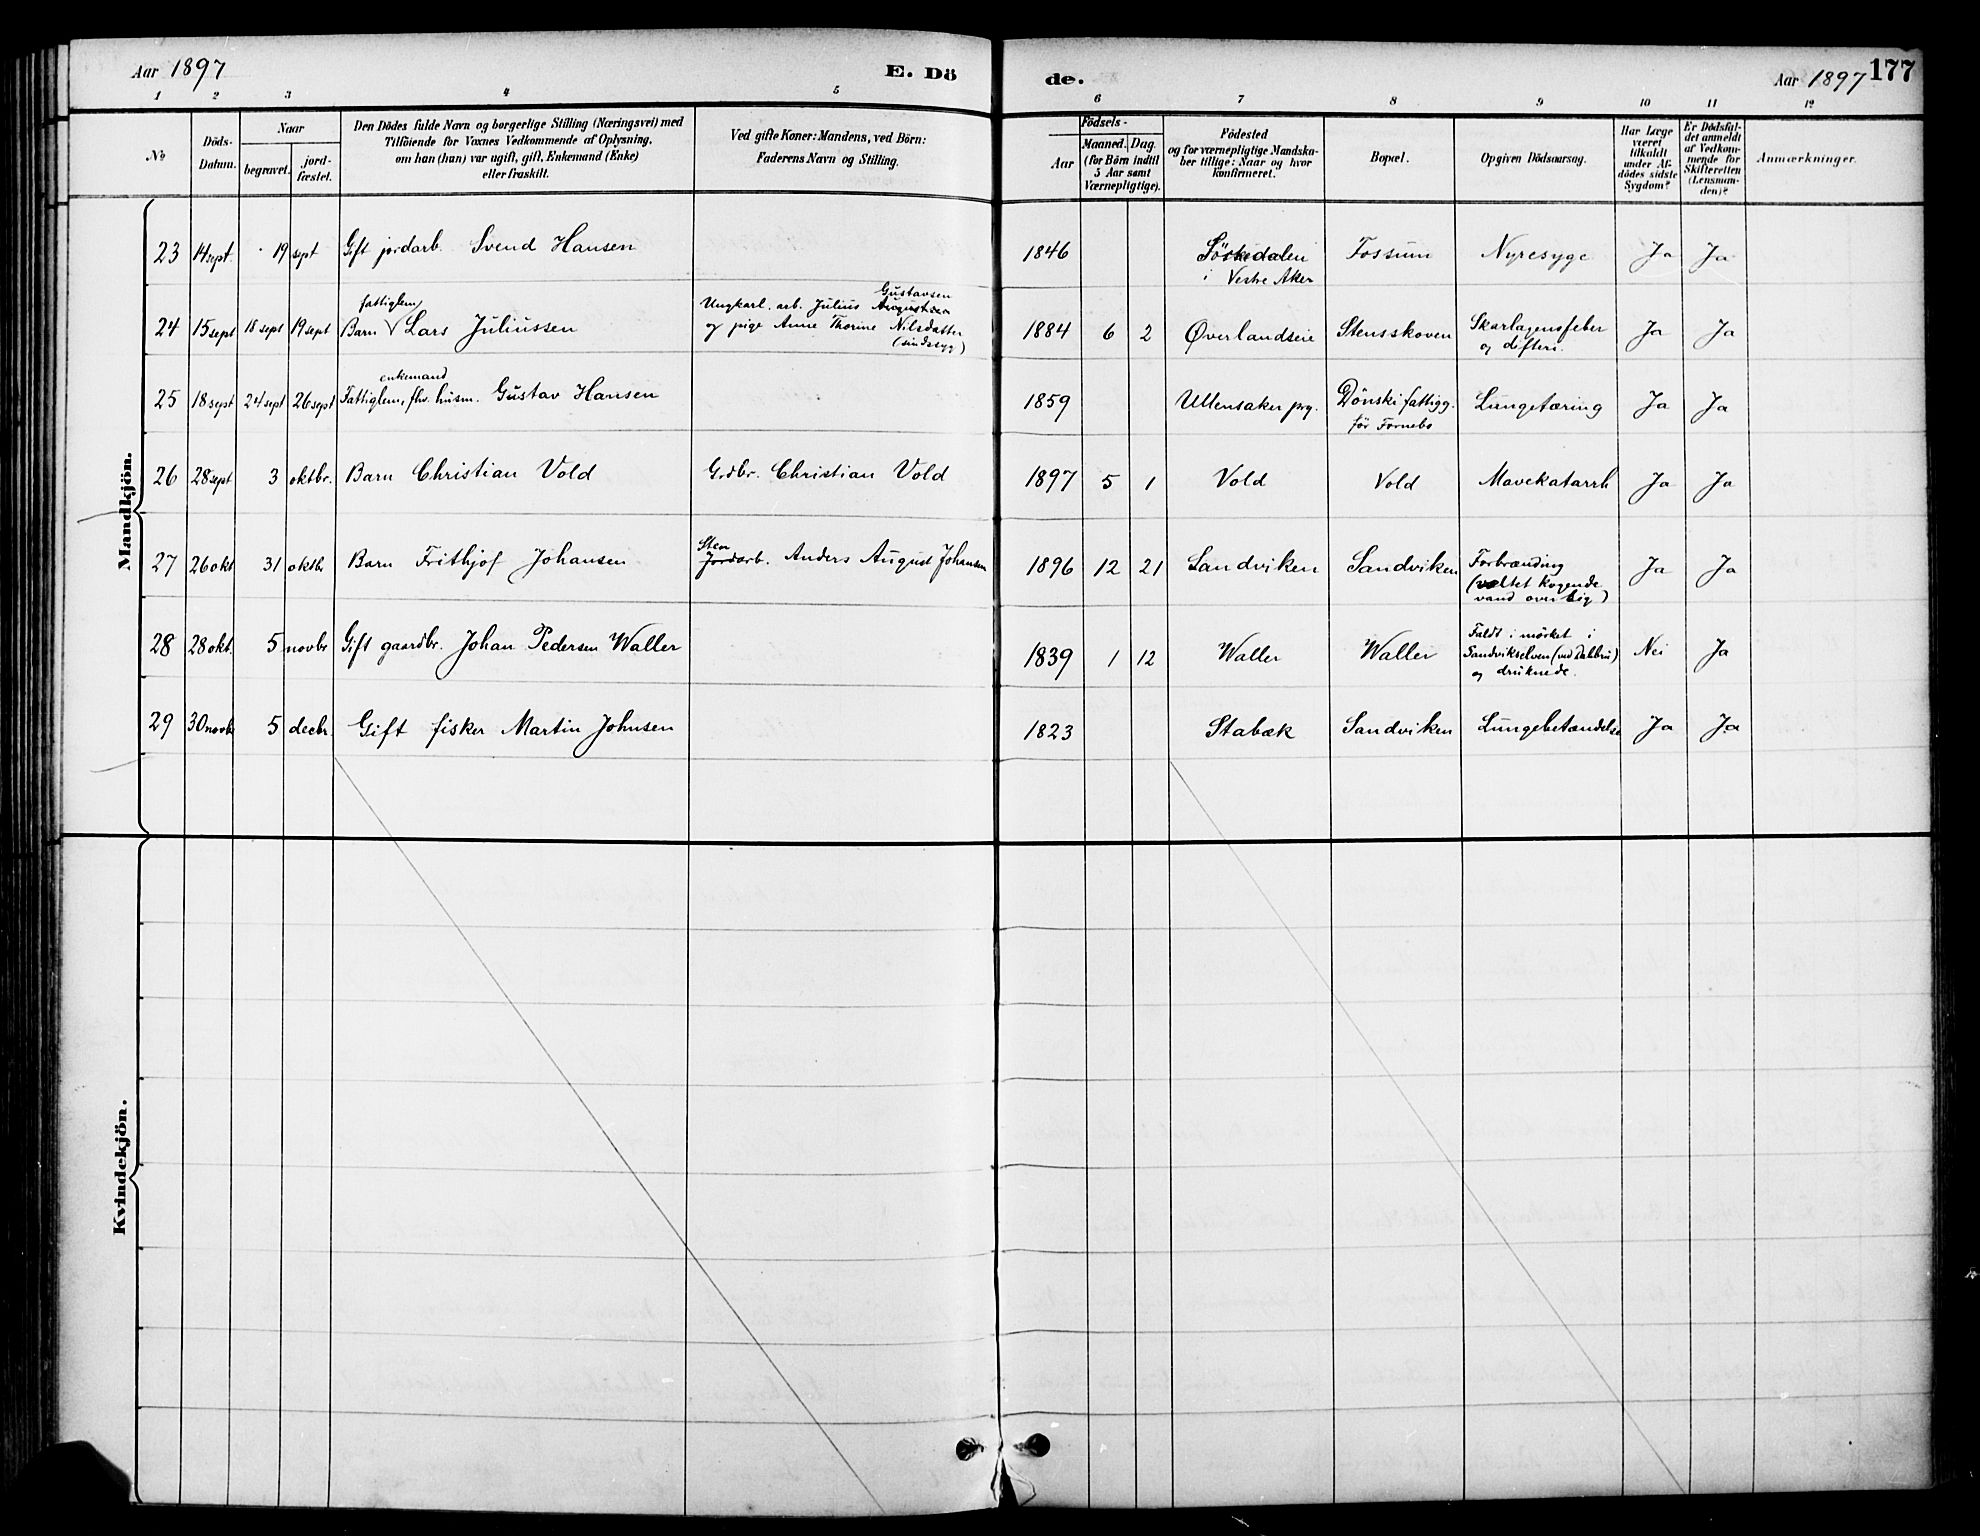 Aar 1897
E. Dö
de.
Aar 1897
177
1 2 3 4 5 6 7 8 9 10 11 12
No
Döds-
Datum.
Naar
begravet.
jord-
fæstet.
Den Dödes fulde Navn og borgerlige Stilling (Næringsvei) med
Tilföiende for Voxnes Vedkommende af Oplysning,
om han (hun) var ugift, gift, Enkemand (Enke)
eller fraskilt.
Ved gifte Koner: Mandens, ved Börn:
Faderens Navn og Stilling.
Födsels-
Aar
Maaned.
Dag.
(for Börn indtil
5 Aar samt
Værnepligtige).
Födested
og for værnepligtige Mandska-
ber tillige: Naar og hvor
konfirmeret.
Bopæl.
Opgiven Dödsaarsag.
Har Læge
været
tilkaldt
under Af-
dödes sidste
Sygdom?
Er Dödsfal-
det anmeldt
af Vedkom-
mende for
Skifteretten
(Lensman-
den)?
Anmærkninger.
Mandkjön.
23 14 sept. 19 sept Gift jordarb. Svend Hansen 1846 Sörkedalen Fossum Nyresyge Ja Ja
i Vestre Aker
fattiglem Gustavsen
24 15 sept 18 sept 19 sept Barn Lars Juliussen Ungkarl. arb. Julius Augustsen 1884 6 2 Øverlandseie Stensskoven Skarlagensfeber Ja Ja
og pige Anne Thorine Nilsdatter og difteri.
(sindssyg)
enkemand
25 18 sept 24 sept 26 sept Fattiglem, fhv. husm. Gustav Hansen 1859 Ullensaker prg. Dönski fattigg. Lungetæring Ja Ja
för Fornebo
26 28 sept 3 oktbr. Barn Christian Vold Grdbr. Christian Vold 1897 5 1 Vold Vold Mavekatarrh Ja Ja
Sten
27 26 okt 31 oktbr Barn Frithjof Johansen Jordarb. Anders August Johansen 1896 12 21 Sandviken Sandviken Forbrænding Ja Ja
(væltet kogende
vand over sig)
28 28 okt. 5 novbr Gift gaardbr. Johan Pedersen Waller 1839 1 12 Waller Waller Faldt i mörket i Nei Ja
Sandvikselven (ved Dahlbru)
og druknede.
29 30 novbr 5 decbr. Gift fisker Martin Johnsen 1823 Stabæk Sandviken Lungebetændelse Ja Ja
Kvindekjön.